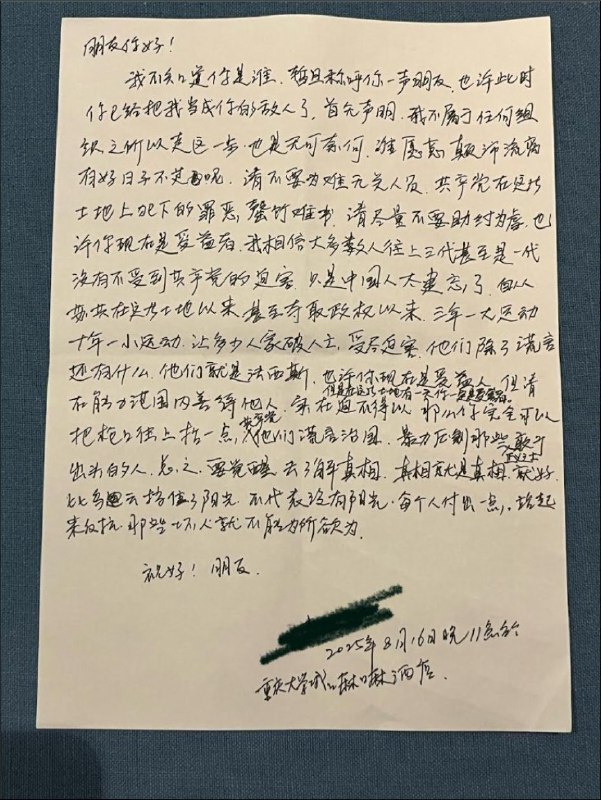 朋友你好！
我不知道你是谁，暂且称呼你一声朋友，也许此时
你已经把我当成你的敌人了，首先声明，我不属于任何组
织之所以走这一步也是无可奈何，谁愿意颠沛流离
有好日子不过呢，请不要为难无关人员，共产党在这片
土地上犯下的罪恶，罄竹难书，请尽量不要助纣为虐，也
许你现在是受益者，我相信大多数人往上三代甚至是一代
没有不受到共产党的迫害，只是中国人太健忘了，自从
共在这片土地以来甚至夺取政权以来，三年一大运动
十年一小运动，让多少人家破人亡，受尽迫害，他们除了谎言
还有什么，他们就是法西斯，也许你现在是受益人，但请
但是在这片土地有一天你一定是受害者
在能力范围内善待他人，实在迫不得以，那以你完全可以
共产党
把枪口往上抬一点，他们谎言治国，暴力压制那些敢于
出头的人，总之，要觉醒去了解真相，真相就是真相，就好
比乌云挡住了阳光，不代表没有阳光，每个人付出一点，站起
来反抗，那些坏人就不能为所欲为。
祝好！朋友．
2025年8月16日晚11点於
重庆大学城麻麻酒店